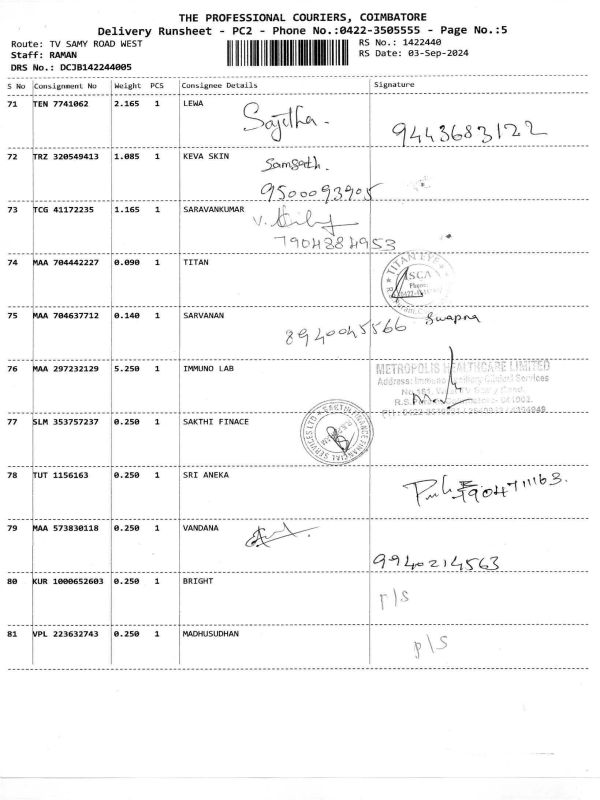 THE PROFESSIONAL COURIERS, COIMBATORE
Delivery Runsheet - PC2 - Phone No.:0422-3505555 - Page No.:5
Route: TV SAMY ROAD WEST RS No.: 1422440
Staff: RAMAN RS Date: 03-Sep-2024
DRS No.: DCJB142244005
S No Consignment No Weight PCS Consignee Details Signature
71 TEN 7741062 2.165 1 LEWA
Sajitha.
9443683122
72 TRZ 320549413 1.085 1 KEVA SKIN
9500093905
73 TCG 41172235 1.165 1 SARAVANKUMAR
7904384953
74 MAA 704442227 0.090 1 TITAN
TITAN EYE
75 MAA 704637712 0.140 1 SARVANAN
8940045566 Swapna
76 MAA 297232129 5.250 1 IMMUNO LAB
METROPOLIS HEALTHCARE LIMITED
77 SLM 353757237 0.250 1 SAKTHI FINACE
SAKTHI FINANCE FINANCIAL SERVICES LTD
78 TUT 1156163 0.250 1 SRI ANEKA
79 MAA 573830118 0.250 1 VANDANA
9940214563
80 KUR 1000652603 0.250 1 BRIGHT
r/s
81 VPL 223632743 0.250 1 MADHUSUDHAN
p/s